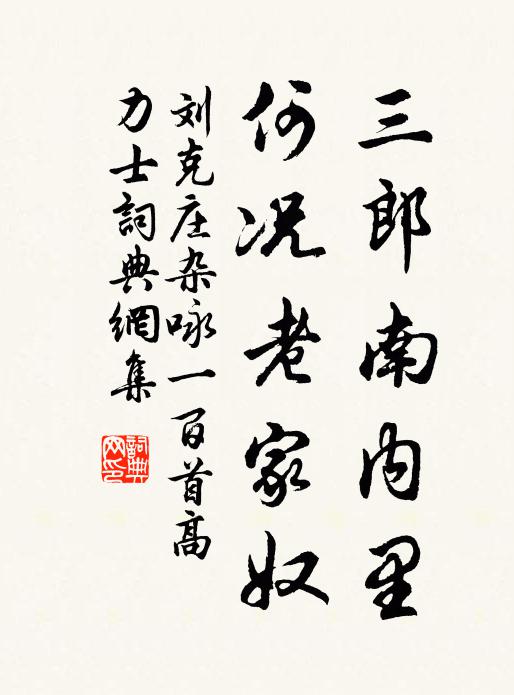 三郎南内里
何况老家奴
刘克庄杂咏一百首高
力士詞典網集
詞典网印